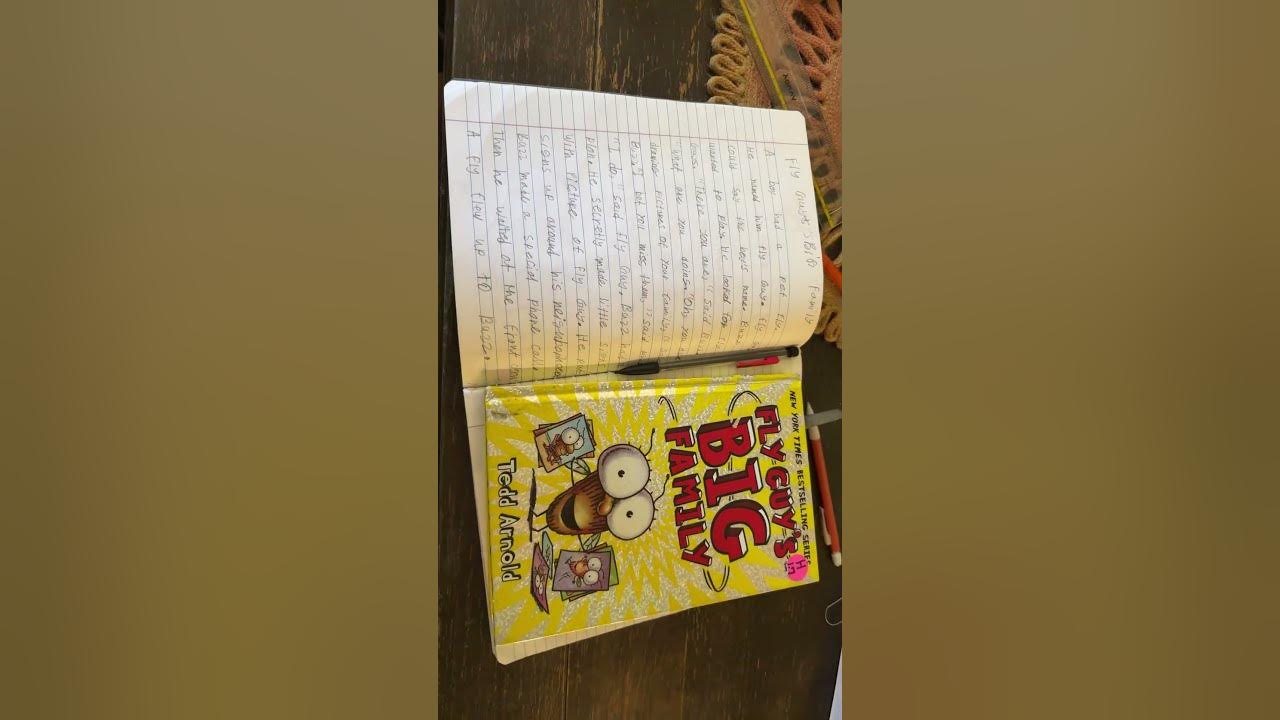 Fly Guy's Big Family
A boy had a pet fly.
He named him Fly Guy. Fly
could say the boy's name. Buzz
wanted to play. He looked for
Guy. There you are," said Buzz
"What are you doing. "Oh, you
drawing pictures of your family,
Buzz" bet you miss them," said
"I do," said Fly Guy. Buzz had
Plan. He secretly made little
with Picture of fly Guy. He
signs up around his neighborhood
Buzz made a special phone call.
Then he waited at the front
A fly flew up to Buzz.
NEW YORK TIMES BESTSELLING SERIES
FLY GUY'S
BIG
FAMILY
Tedd Arnold
H